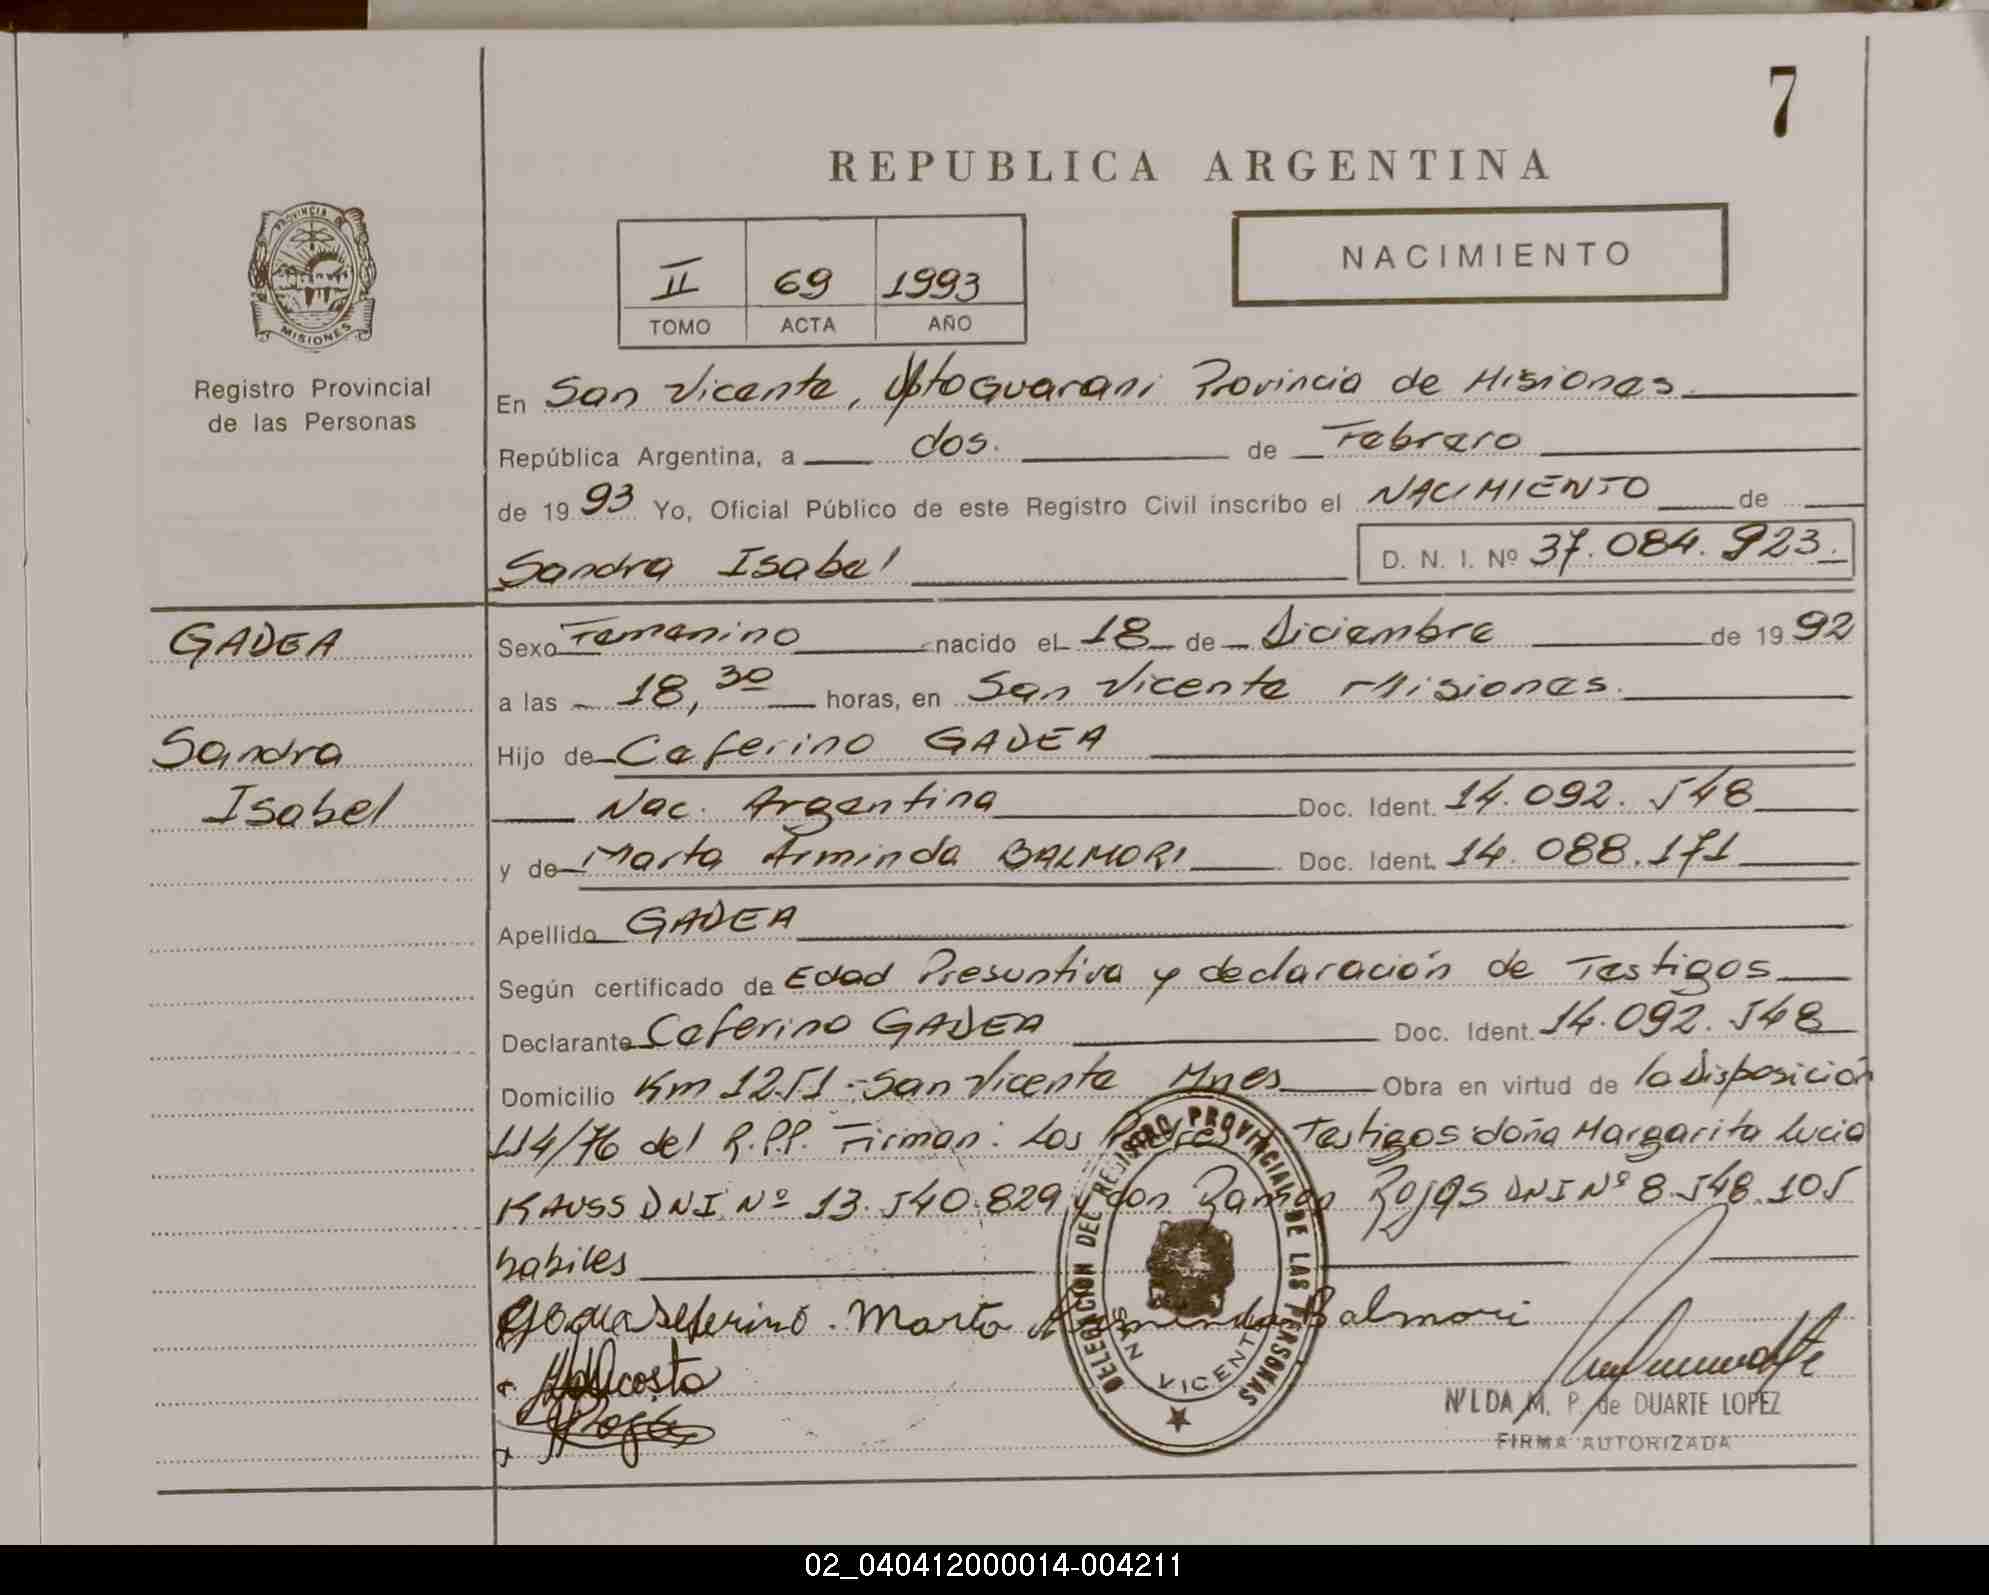 7
REPUBLICA ARGENTINA
PROVINCIA DE
MISIONES
Registro Provincial
de las Personas
NACIMIENTO
II 69 1993
TOMO ACTA AÑO
En San Vicente, Dpto Guarani Provincia de Misiones.
República Argentina, a dos. de Febrero
de 1993 Yo, Oficial Público de este Registro Civil inscribo el NACIMIENTO de
Sandra Isabel D. N. I. Nº 37.084.923.
GADEA
Sandra
Isabel
Sexo Femenino nacido el 18 de Diciembre de 1992
a las 18,30 horas, en San Vicente Misiones.
Hijo de Ceferino GADEA
Nac. Argentina Doc. Ident. 14.092.548
y de Marta Arminda BALMORI Doc. Ident. 14.088.171
Apellido GADEA
Según certificado de Edad Presuntiva y declaración de Testigos
Declarante Ceferino GADEA Doc. Ident. 14.092.548
Domicilio Km 1251 - San Vicente Mnes Obra en virtud de la Disposición
114/76 del R.P.P. Firman: Los Padres Testigos doña Margarita Lucia
KAUSS DNI Nº 13.540.829 y don Ramon Rojas DNI Nº 8.548.105
habiles
Gadea Seferino. Marta Arminda Balmori
DELEGACION DEL REGISTRO PROVINCIAL DE LAS PERSONAS
SAN VICENTE
NILDA M. P. de DUARTE LOPEZ
FIRMA AUTORIZADA
02_040412000014-004211